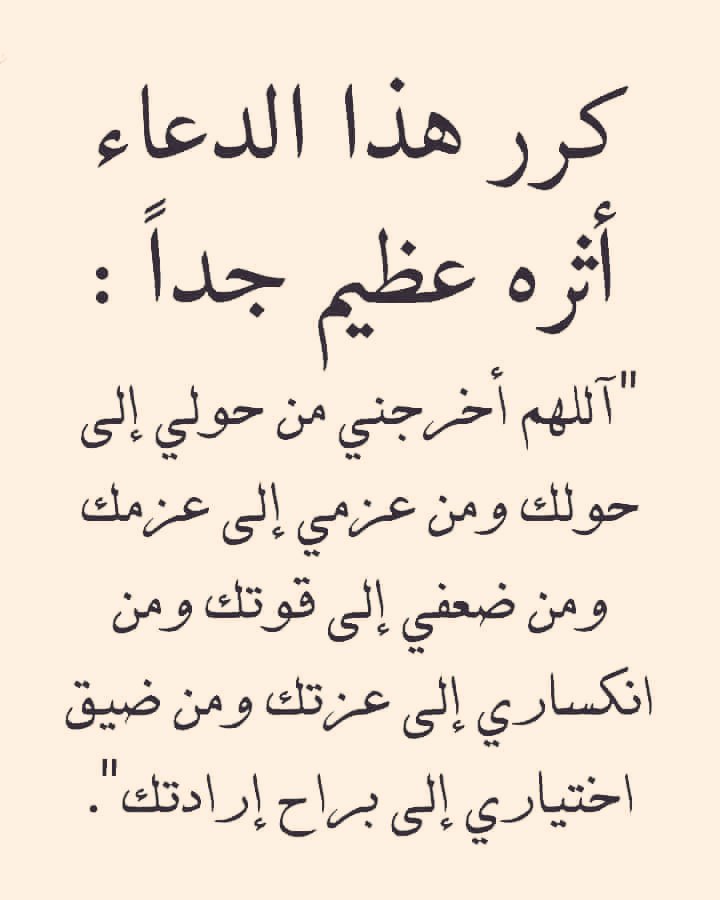 كرر هذا الدعاء
أثره عظيم جداً :
"آللهم أخرجني من حولي إلى
حولك ومن عزمي إلى عزمك
ومن ضعفي إلى قوتك ومن
انكساري إلى عزتك ومن ضيق
اختياري إلى براح إرادتك".